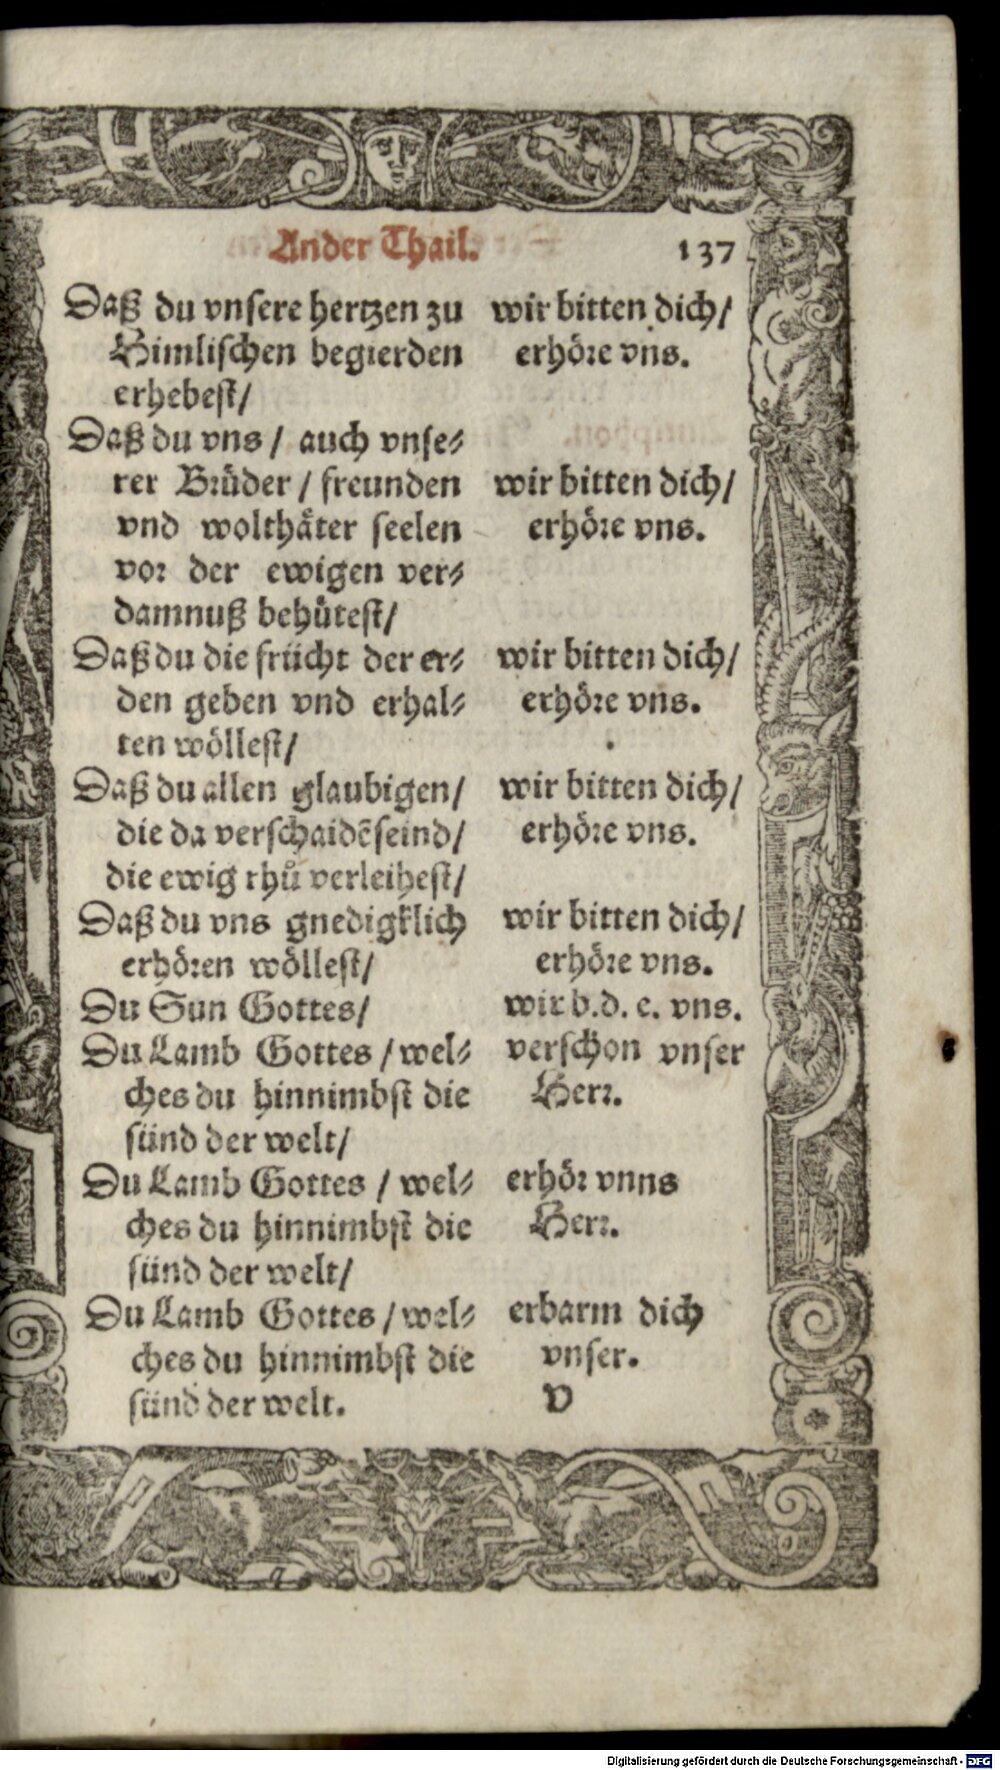 Ander Thail. 137
Daß du vnsere hertzen zu wir bitten dich/
Himlischen begierden erhöre vns.
erhebest/
Daß du vns / auch vnse⸗
rer Brüder / freunden wir bitten dich/
vnd wolthäter seelen erhöre vns.
vor der ewigen ver⸗
damnuß behütest/
Daß du die frücht der er⸗ wir bitten dich/
den geben vnd erhal⸗ erhöre vns.
ten wöllest/
Daß du allen glaubigen/ wir bitten dich/
die da verschaidẽ seind/ erhöre vns.
die ewig rhů verleihest/
Daß du vns gnedigklich wir bitten dich/
erhören wöllest/ erhöre vns.
Du Sun Gottes/ wir b.d.e. vns.
Du Lamb Gottes / wel⸗ verschon vnser
ches du hinnimbst die Herr.
sünd der welt/
Du Lamb Gottes / wel⸗ erhör vnns
ches du hinnimbst die Herr.
sünd der welt/
Du Lamb Gottes / wel⸗ erbarm dich
ches du hinnimbst die vnser.
sünd der welt. V
Digitalisierung gefördert durch die Deutsche Forschungsgemeinschaft - DFG